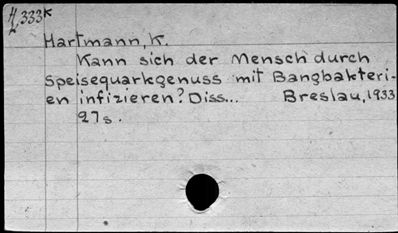 H,333K
Hartmann, K.
Kann sich der Mensch durch
Speisequarkgenuss mit Bangbakteri-
en infizieren? Diss... Breslau, 1933
27s.